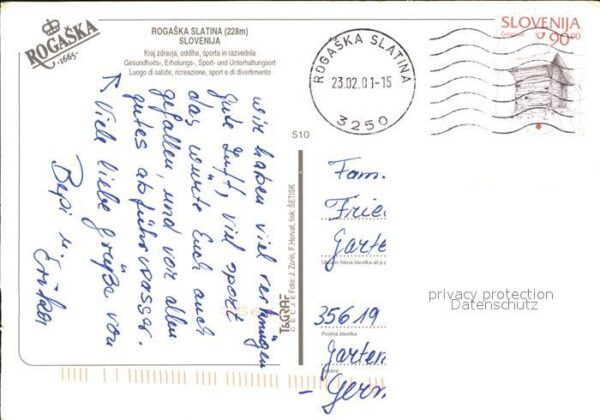 ROGAŠKA
·1665·
ROGAŠKA SLATINA (228m)
SLOVENIJA
Kraj zdravja, oddiha, športa in razvedrila
Gesundheits-, Erholungs-, Sport- und Unterhaltungsort
Luogo di salute, ricreazione, sport e di divertimento
SLOVENIJA
90
ROGAŠKA SLATINA
23.02.01-15
3250
510
wir haben viel vergnügen
gute Luft, viel sport
das würde Euch auch
gefallen, und vor allem
gutes abführwasser.
Viele liebe grüße von
Bepi u. Erika
Foto J. Zorin, F. Horvat, tisk: ŠETISK
T&GRAF
CELJE
Fam.
Frie
Garte
35619
Poštna številka
Garten
- Germ
privacy protection
Datenschutz